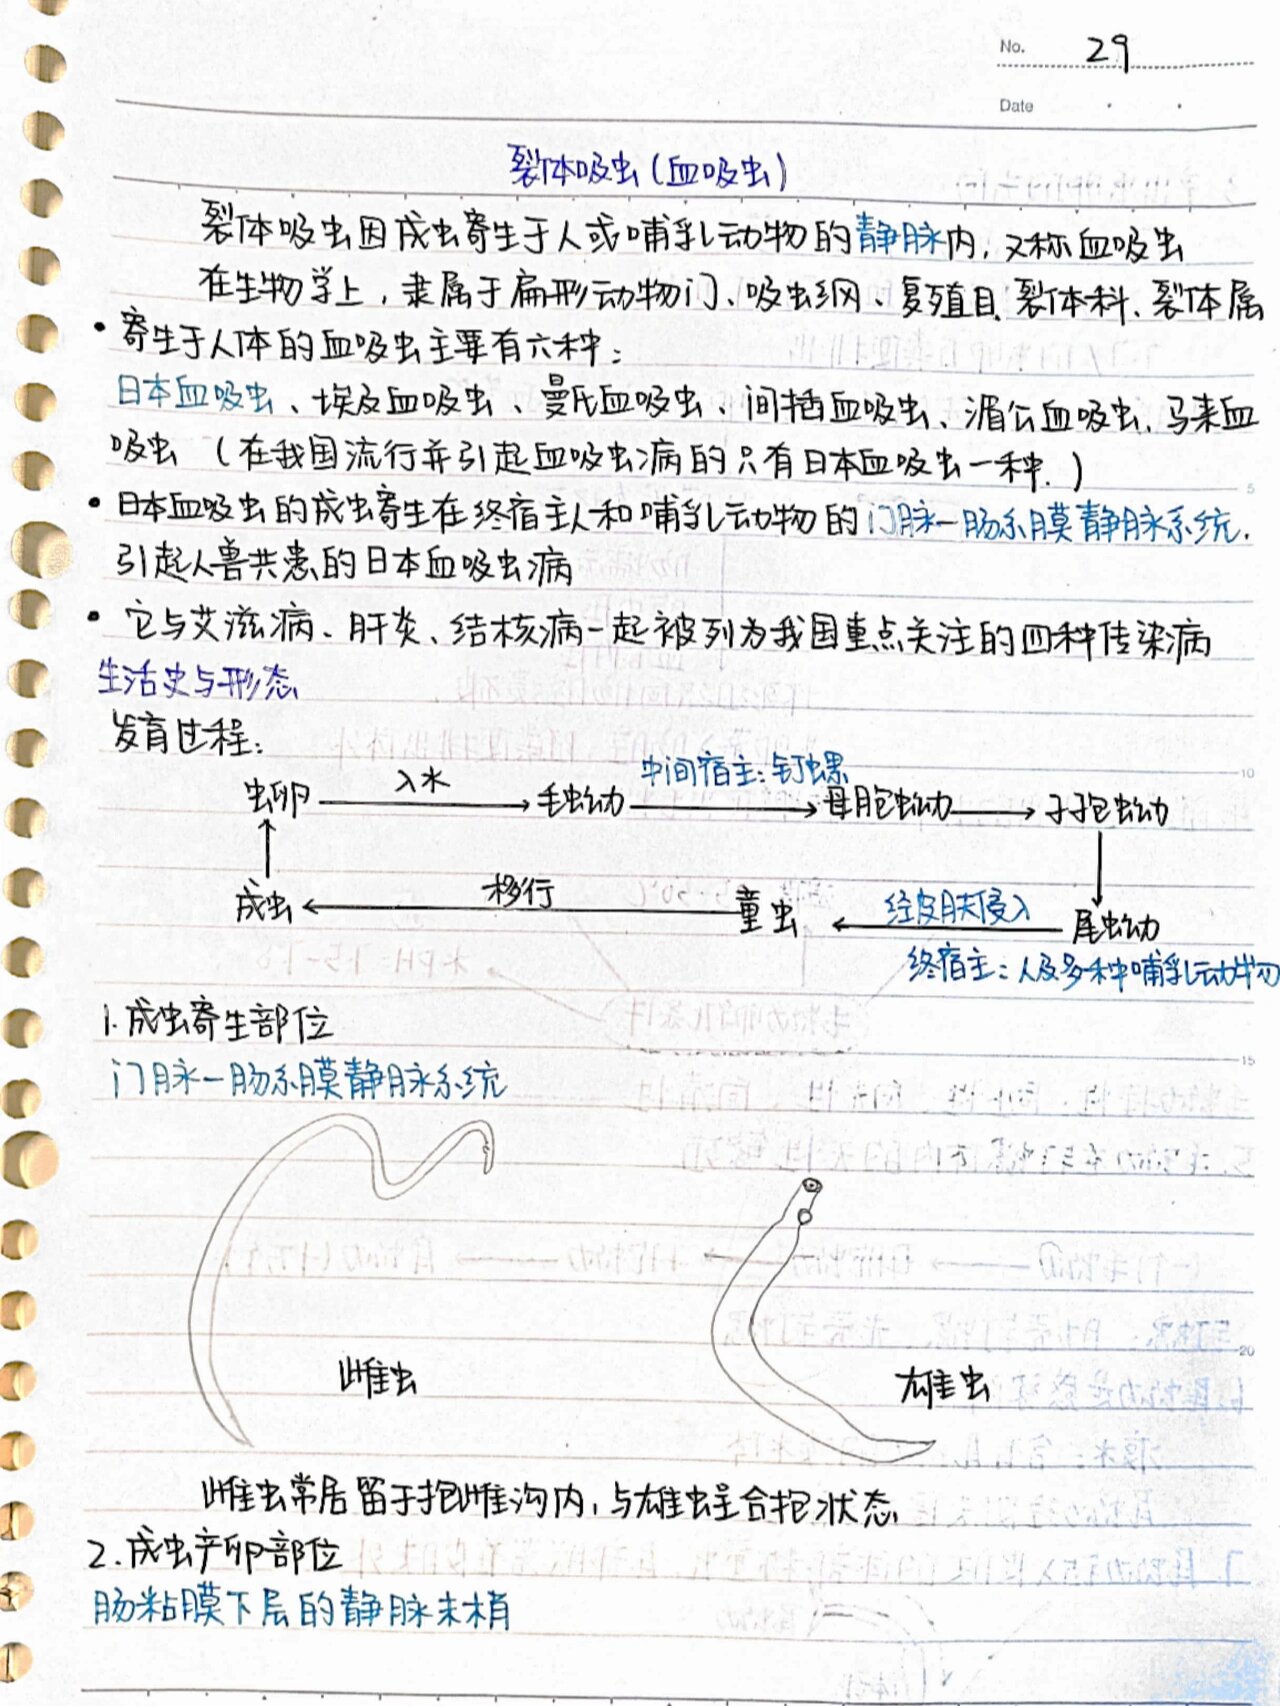 No. 29
Date
裂体吸虫(血吸虫)
裂体吸虫因成虫寄生于人或哺乳动物的静脉内,又称血吸虫
在生物学上,隶属于扁形动物门、吸虫纲、复殖目、裂体科、裂体属
• 寄生于人体的血吸虫主要有六种:
日本血吸虫、埃及血吸虫、曼氏血吸虫、间插血吸虫、湄公血吸虫、马来血
吸虫 (在我国流行并引起血吸虫病的只有日本血吸虫一种.)
• 日本血吸虫的成虫寄生在终宿主人和哺乳动物的门脉—肠系膜静脉系统,
引起人兽共患的日本血吸虫病
• 它与艾滋病、肝炎、结核病一起被列为我国重点关注的四种传染病
生活史与形态
发育过程:
虫卵 入水 毛虫幼 中间宿主:钉螺 母胞虫幼 子孢虫幼
成虫 移行 童虫 经皮肤侵入 尾虫幼
终宿主:人及多种哺乳动物
1.成虫寄生部位
门脉—肠系膜静脉系统
雌虫
雄虫
雌虫常居留于抱雌沟内,与雄虫呈合抱状态
2.成虫产卵部位
肠粘膜下层的静脉末梢